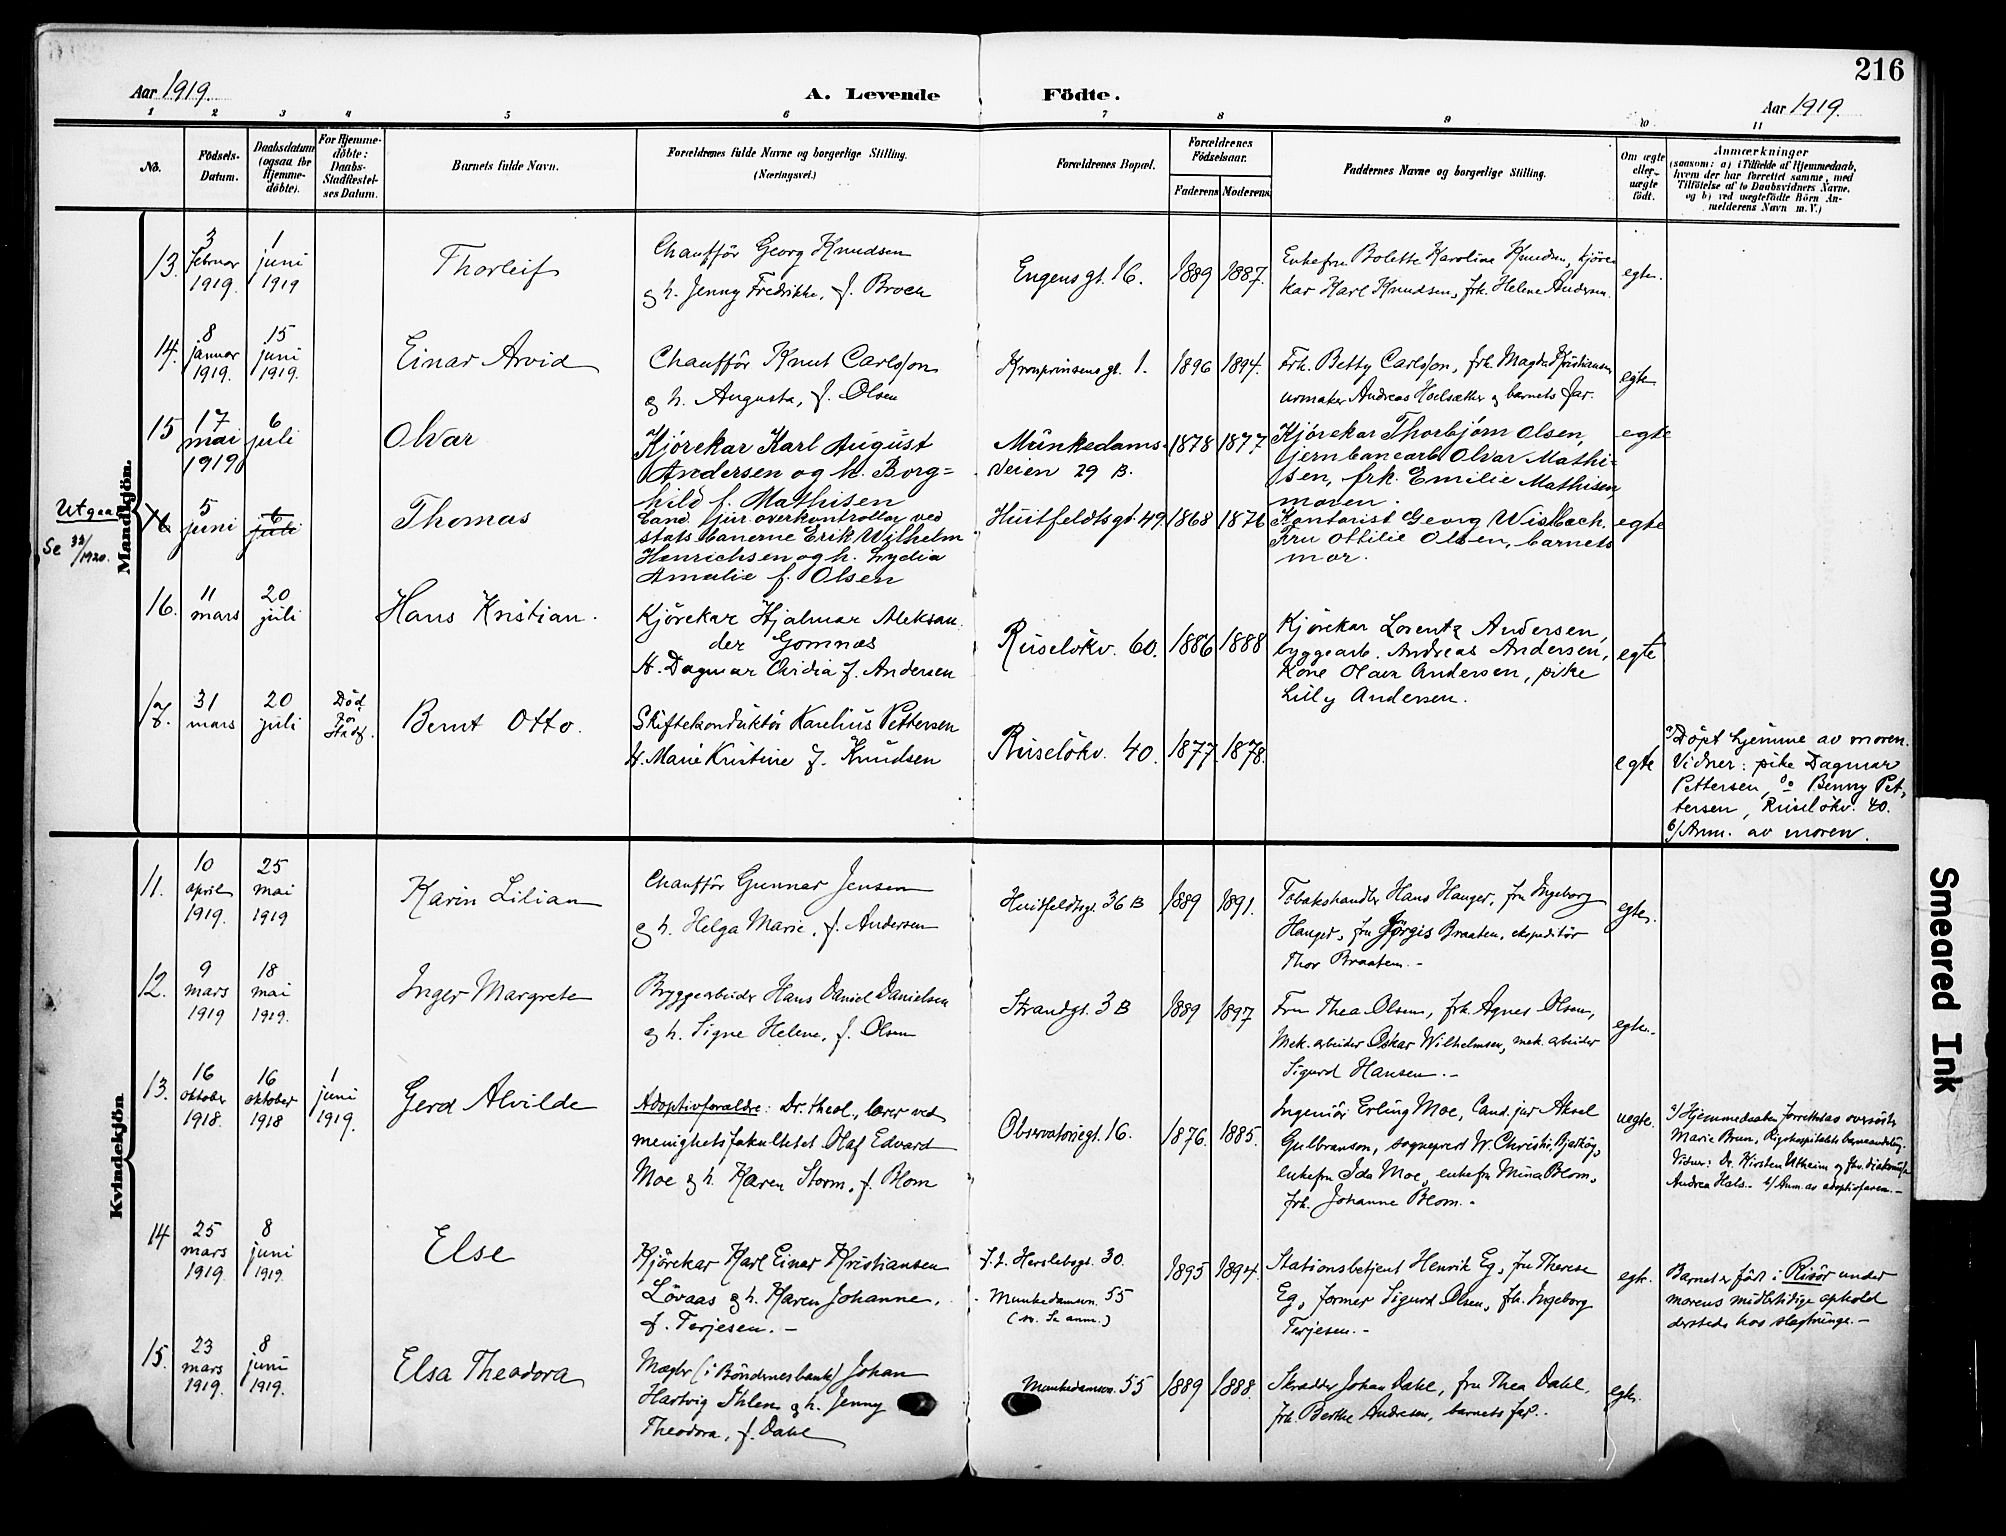 216
Aar 1919.
A. Levende
Födte.
Aar 1919.
1 2 3 4 5 6 7 8 9 10 11
No.
Födsels-
Datum.
Daabsdatum
(ogsaa for
Hjemme-
døbte).
For Hjemme-
döbte:
Daabs-
Stadfæstel-
ses Datum.
Barnets fulde Navn.
Forældrenes fulde Navne og borgerlige Stilling.
(Næringsvei.)
Forældrenes Bopæl.
Forældrenes
Födselsaar.
Faderens Moderens
Faddernes Navne og borgerlige Stilling.
Om ægte
eller
uægte
född.
Anmærkninger
(saasom: a) i Tilfælde af Hjemmedaab,
hvem der har forrettet samme, med
Tilföielse af to Daabsvidners Navne,
og b) ved uægtefödte Börn An-
melderens Navn m. V.)
Mandkjön.
13.
3
februar
1919.
1
juni
1919
Thorleif
Chaufför Georg Knudsen
og h. Jenny Fredrikke, f. Broch
Engens gt. 16.
1889
1887.
Enkefru Bolette Karoline Knudsen, kjöre-
kar Karl Knudsen, frk. Helene Andersen.
egte.
14.
8
januar
1919.
15
juni
1919.
Einar Arvid
Chaufför Knut Carlsson
og h. Augusta, f. Olsen
Kronprinsensgt. 1.
1896
1894.
Frk. Betty Carlsson, frk. Magda Kristiansen
urmaker Andreas Hoelsæther og barnets far.
egte
15
17
mai
1919
6
juli
Olvar
Kjørekar Karl August
Andersen og h. Borg=
hild f. Mathisen
Munkedams-
veien 29 B.
1878
1877.
Kjørekar Thorbjørn Olsen,
jernbanearb. Olvar Mathi=
sen, frk. Emilie Mathisen,
moren.
egte
Utgaar
Se 33/1920.
16
5
juni
6
juli
Thomas
Cand. jur. overkontrollør ved
statsbanerne Erik Wilhelm
Henrichsen og h. Lydia
Amalie f. Olsen
Huitfeldtsgt. 49.
1868
1876
Kontorist Georg Wisbech.
Fru Ottilie Olsen, barnets
mor.
egte
16.
11
mars
20
juli
Hans Kristian.
Kjørekar Hjalmar Aleksan
der Gomnæs
H. Dagmar Ovidia f. Andersen
Ruseløkv. 60.
1886
1888
Kjørekar Lorentz Andersen,
byggearb. Andreas Andersen,
Kone Olava Andersen, pike
Lilly Andersen.
egte
17.
31
mars
20
juli
Død
før
Stadf.
Bernt Otto.
Skiftekonduktør Karelius Pettersen
H. Marie Kristine f. Knudsen
Ruseløkv. 40.
1877.
1878.
egte
a) Døpt hjemme av moren.
Vidner: pike Dagmar
Pettersen, do Benny Pet-
tersen, Ruseløkv. 40.
b) Anm. av moren.
Kvindekjön
11.
10
april
1919.
25
mai
1919
Karin Lilian
Chauffør Gunnar Jensen
og h. Helga Marie, f. Andersen
Huitfeldtsgt. 36 B
1889
1891.
Tobakshandler Hans Hanger, fru Ingeborg
Hanger, fru Jørgis Braaten, ekspeditør
Thor Braaten.-
egte.
12.
9
mars
1919
18
mai
1919.
Inger Margrete
Bryggearbeider Hans Daniel Danielsen
og h. Signe Helene, f. Olsen
Strandgt. 3 B
1889
1897
Fru Thea Olsen, frk. Agnes Olsen,
Mek. arbeider Oskar Wilhelmsen, mek. arbeider
Sigurd Hansen.-
egte.
13.
16
oktober
1918.
16
oktober
1918
1
juni
1919.
Gerd Alvilde
Adoptivforældre: Dr. theol., lærer ved
menighetsfakultetet Olaf Edvard
Moe og h. Karen Storm, f. Blom
Observatoriegt. 16.
1876.
1885.
Ingeniör Erling Moe, Cand. jur Aksel
Gulbranson, sogneprest W. Christie, Bjarkøy,
enkefru Ida Moe, enkefru Mina Blom,
frk. Johanne Blom.-
uegte.
a) Hjemmedaaben forrettedes av oversöster
Marie Brun, Rigshospitalets barneavdeling.
Vidner: Dr. Kirsten Utheim og
Andrea Hals.- b/ Anm. av adoptivfaren.-
14
25
mars
1919.
8
juni
1919.
Else
Kjørekar Karl Einar Kristiansen
Lövaas og h. Karen Johanne,
f. Terjesen.-
Herslebsgt. 30.
Munkedamsvn. 55
(Se anm.)
1895
1894.
Stationsbetjent Henrik Eg, fru Therese
Eg, former Sigurd Olsen, frk. Ingeborg
Terjesen.-
egte.
Barnet er född i Risör under
morens midlertidige ophold
dersteds hos slegtninge.-
15.
23
mars
1919.
8
juni
1919.
Elsa Theodora
Mægler (i Böndernes bank) Johan
Hartvig Ihlen og h. Jenny
Theodora, f. Dahl
Munkedamsvn. 55
1889
1888.
Skrædder Johan Dahl, fru Thea Dahl,
frk. Berthe Andresen, barnets far.
egte.
Smeared Ink